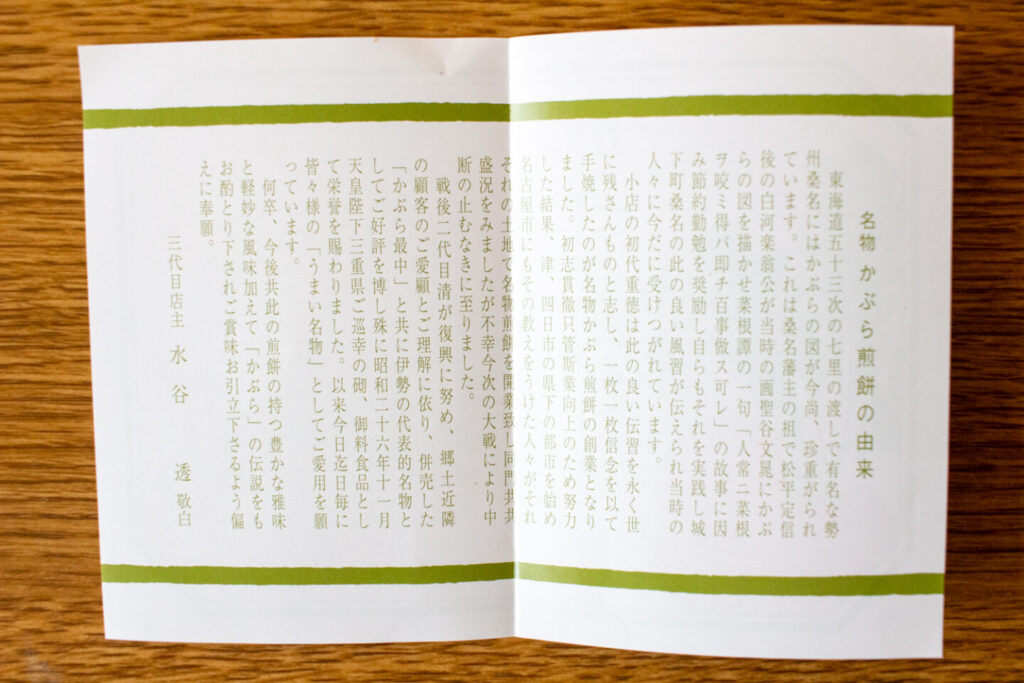 名物 かぶら煎餅の由来
東海道五十三次の七里の渡しで有名な勢
州桑名にはかぶらの図が今尚、珍重がられ
ています。これは桑名藩主の祖で松平定信
後の白河楽翁公が当時の画聖谷文晁にかぶ
らの図を描かせ菜根譚の一句「人常ニ菜根
ヲ咬ミ得バ即チ百事做ス可レ」の故事に因
み節約勤勉を奨励し自らもそれを実践し城
下町桑名の此の良い風習が伝えられ当時の
人々に今だに受けつがれています。
小店の初代重徳は此の良い伝習を永く世
に残さんものと志し、一枚一枚信念を以て
手焼したのが名物かぶら煎餅の創業となり
ました。初志貫徹只管斯業向上のため努力
した結果、津、四日市の県下の都市を始め
名古屋市にもその教えをうけた人々がそれ
ぞれの土地で名物煎餅を開業致し同門共共
盛況をみましたが不幸今次の大戦により中
断の止むなきに至りました。
戦後二代目清が復興に努め、郷土近隣
の顧客のご愛顧とご理解に依り、併売した
「かぶら最中」と共に伊勢の代表的名物と
してご好評を博し殊に昭和二十六年十一月
天皇陛下三重県ご巡幸の砌、御料食品とし
て栄誉を賜わりました。以来今日迄日毎に
皆々様の「うまい名物」としてご愛用を願
っています。
何卒、今後共此の煎餅の持つ豊かな雅味
と軽妙な風味加えて「かぶら」の伝説をも
お酌とり下されご賞味お引立下さるよう偏
えに奉願。
三代目店主 水谷 透 敬白